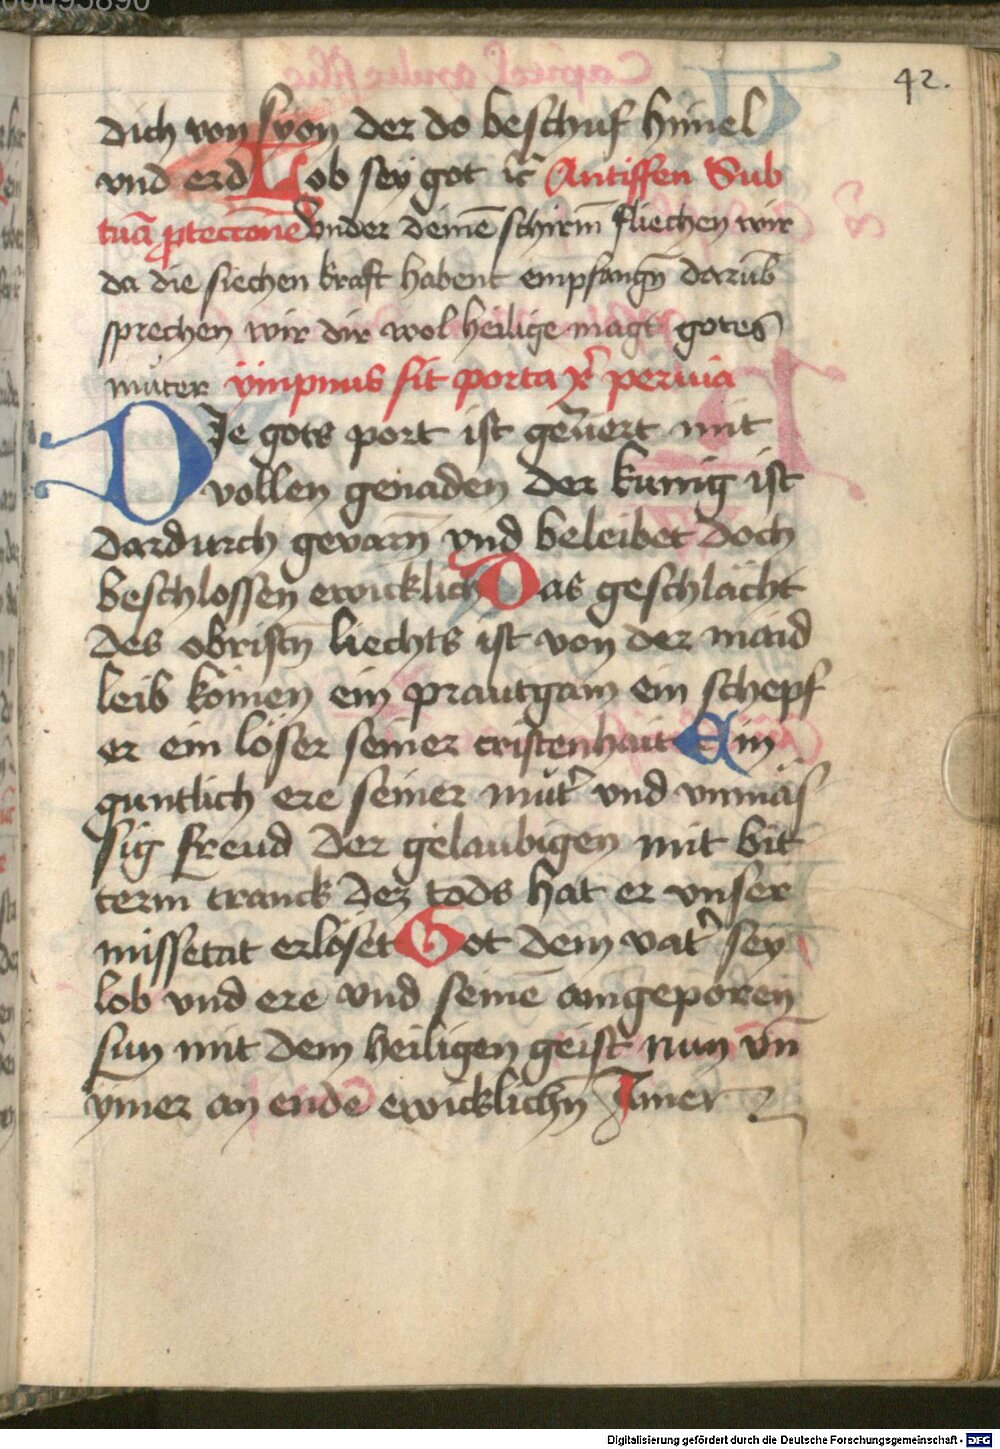 42.
dich von syon der do beschuf himel
vnd erd Lob sey got ꝛc̃ Antiffen Sub
tuā ꝓteccōne Vnder deinē schirm̄ fliechen wir
da die siechen kraft habent empfangn̄ darūb
sprechen wir dir wol heilige magt gotes
muter ympnus sit porta xp̄i peruia
DJe gots port ist geu̇ert mit
vollen genaden der kunig ist
dardurch gevarn̄ vnd beleibet doch
beschlossen ewicklich Das geschlächt
des obristn̄ liechts ist von der maid
leib komen ein prautgam ein schepf
er ein löser seiner cristenhait Ein
guntlich ere seiner mut̓ vnd vnmäs
sig freud der gelaubigen mit bit
term tranck dez tods hat er vnser
missetat erlöset Got dem vat̓ sey
lob vnd ere vnd seinē aingeporen
sun mit dem heiligen geist nun vn̄
ymer an ende ewicklichn̄ Amen
Digitalisierung gefördert durch die Deutsche Forschungsgemeinschaft - DFG